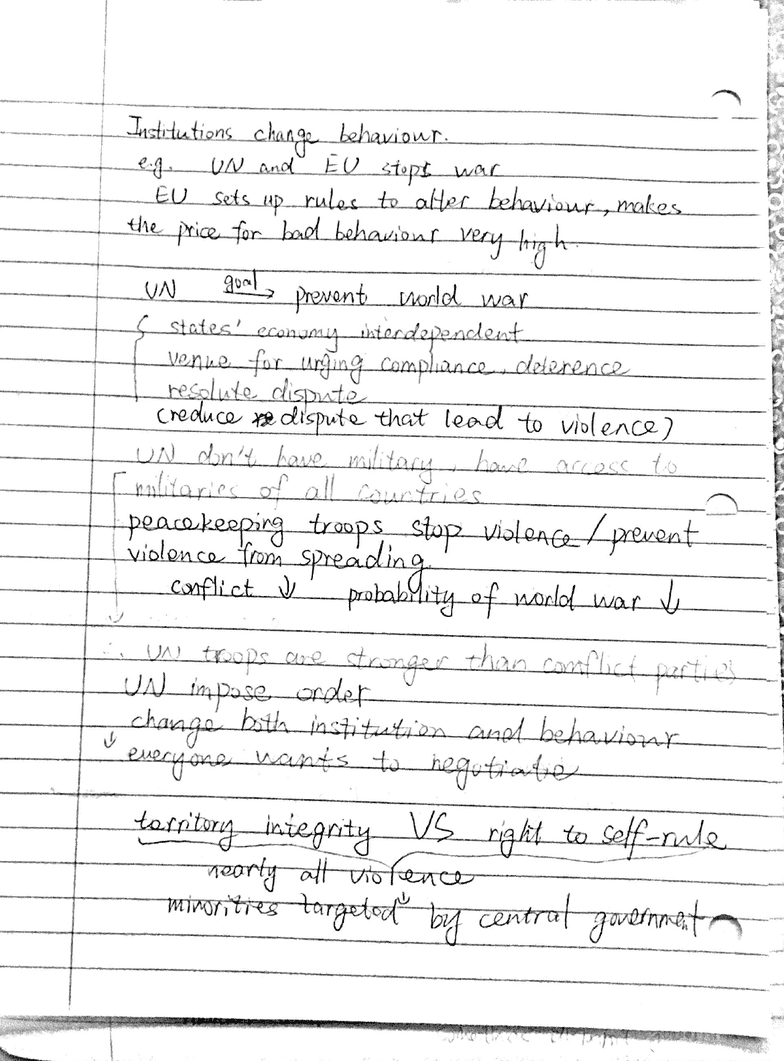 Institutions change behaviour.
e.g. UN and EU stops war
EU sets up rules to alter behaviour, makes
the price for bad behaviour very high.
UN goal → prevent world war
{ states' economy interdependent
venue for urging compliance, deterence
resolute dispute
(reduce dispute that lead to violence)
UN don't have military, have access to
militaries of all countries
peacekeeping troops stop violence / prevent
violence from spreading
conflict ↓ probability of world war ↓
∴ UN troops are stronger than conflict parties
UN impose order
change both institution and behaviour
↓ everyone wants to negotiatie
territory integrity VS right to self-rule
nearly all violence
↓
minorities targeted by central government